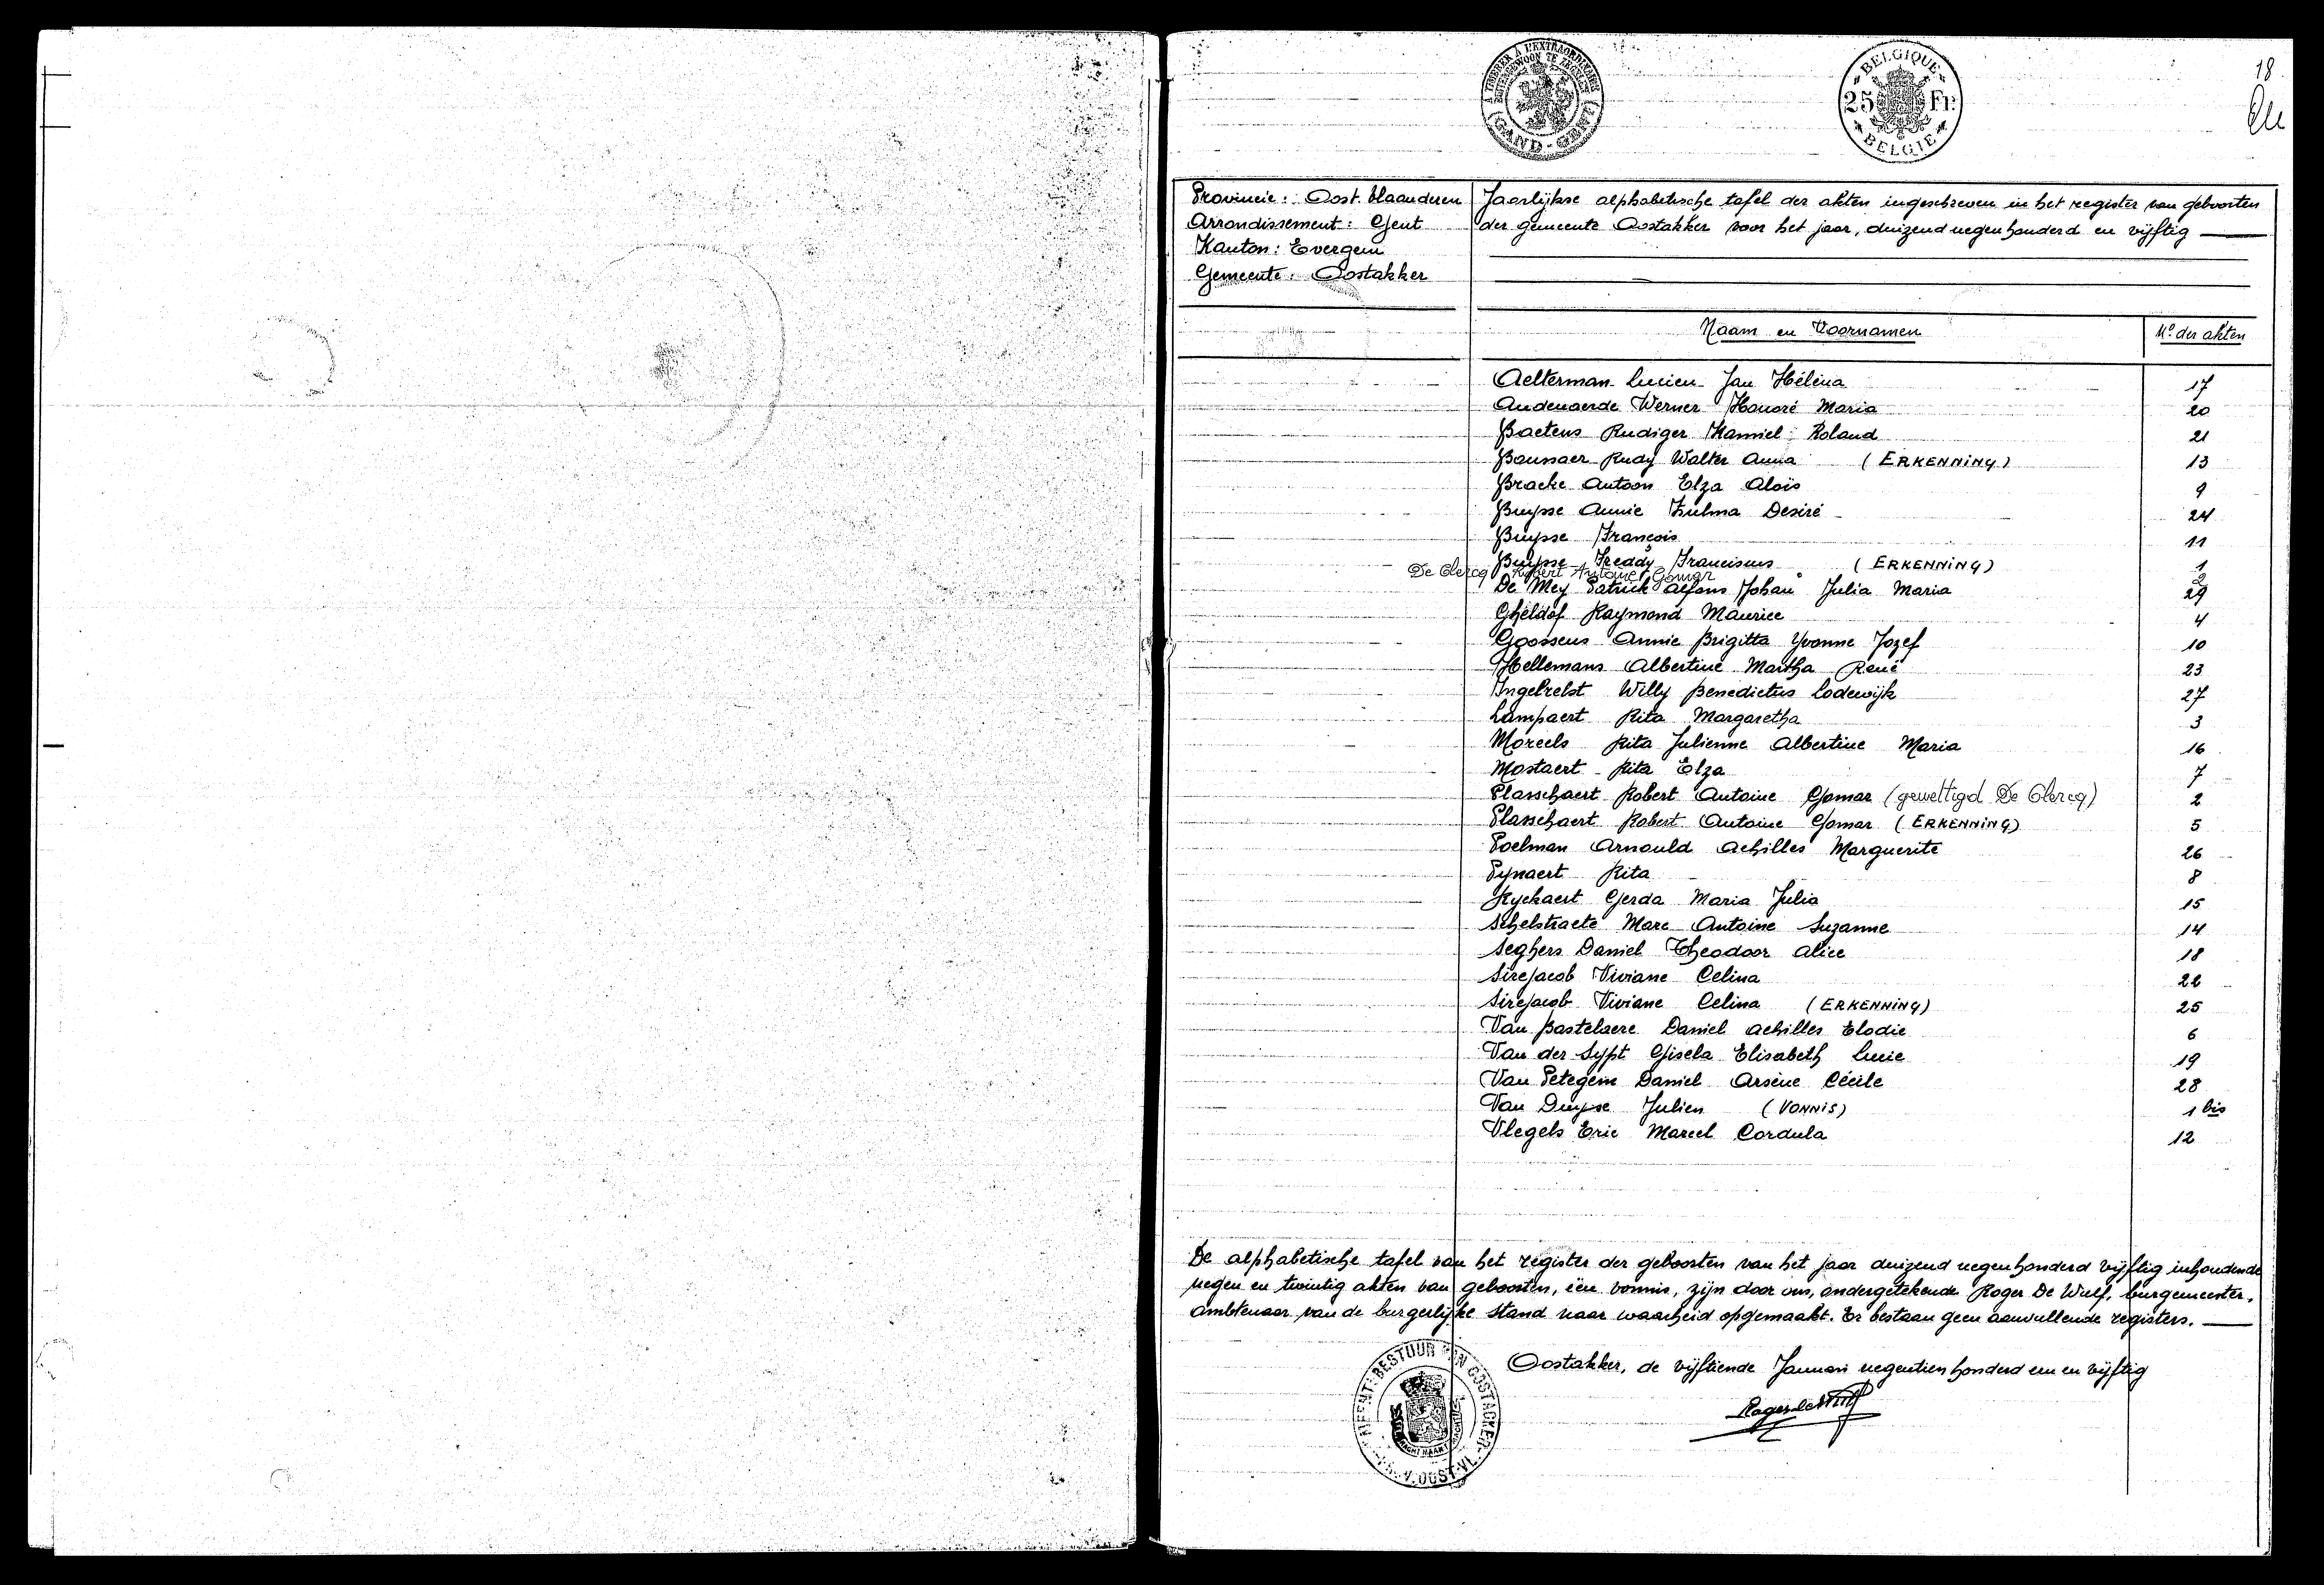 18
A TIMBRER À L'EXTRAORDINAIRE
BUITENGEWOON TE ZEGELEN
GAND - GENT
BELGIQUE
25 Fr.
BELGIË
Provincie: Oost. Vlaanderen
Arrondissement: Gent
Kanton: Evergem
Gemeente: Oostakker
Jaarlijkse alphabetische tafel der akten ingeschreven in het register van geboorten
der gemeente Oostakker voor het jaar, duizend negenhonderd en vijftig
Naam en Voornamen Nº der akten
Aelterman Lucien Jan Hélèna 17
Audenaerde Werner Honoré Maria 20
Baetens Rudiger Kamiel Roland 21
Baumaer Rudy Walter Anna (ERKENNING) 13
Bracke Antoon Elza Aloïs 9
Buysse Annie Zulma Desiré 24
Buysse François 11
Buysse Freddy Franciscus (ERKENNING) 1
De Clercq Robert Antoine Gomar 2
De Mey Patrick Alfons Johan Julia Maria 29
Gheldof Raymond Maurice 4
Goossens Annie Brigitta Yvonne Jozef 10
Hellemans Albertine Martha René 23
Ingelrelst Willy Benedictus Lodewijk 27
Lampaert Rita Margaretha 3
Moreels Rita Julienne Albertine Maria 16
Mostaert Rita Elza 7
Plasschaert Robert Antoine Gomar (gewettigd De Clercq) 2
Plasschaert Robert Antoine Gomar (ERKENNING) 5
Poelman Arnould Achilles Marguerite 26
Pynaert Rita 8
Ryckaert Gerda Maria Julia 15
Schelstraete Marc Antoine Suzanne 14
Seghers Daniel Theodoor Alice 18
Sirejacob Viviane Celina 22
Sirejacob Viviane Celina (ERKENNING) 25
Van Bastelaere Daniel Achilles Elodie 6
Van der Sypt Gisela Elisabeth Lucie 19
Van Petegem Daniel Arsène Cécile 28
Van Duyse Julien (VONNIS) 1 bis
Vlegels Eric Marcel Cordula 12
De alphabetische tafel van het register der geboorten van het jaar duizend negenhonderd vijftig inhoudende
negen en twintig akten van geboorten, één vonnis, zijn door ons, ondergetekende Roger De Wulf, burgemeester,
ambtenaar van de burgerlijke stand naar waarheid opgemaakt. Er bestaan geen aanvullende registers.
Oostakker, de vijftiende Januari negentien honderd een en vijftig
Roger De Wulf
GEMEENTEBESTUUR VAN OOSTACKER
PROV. OOST-VL.